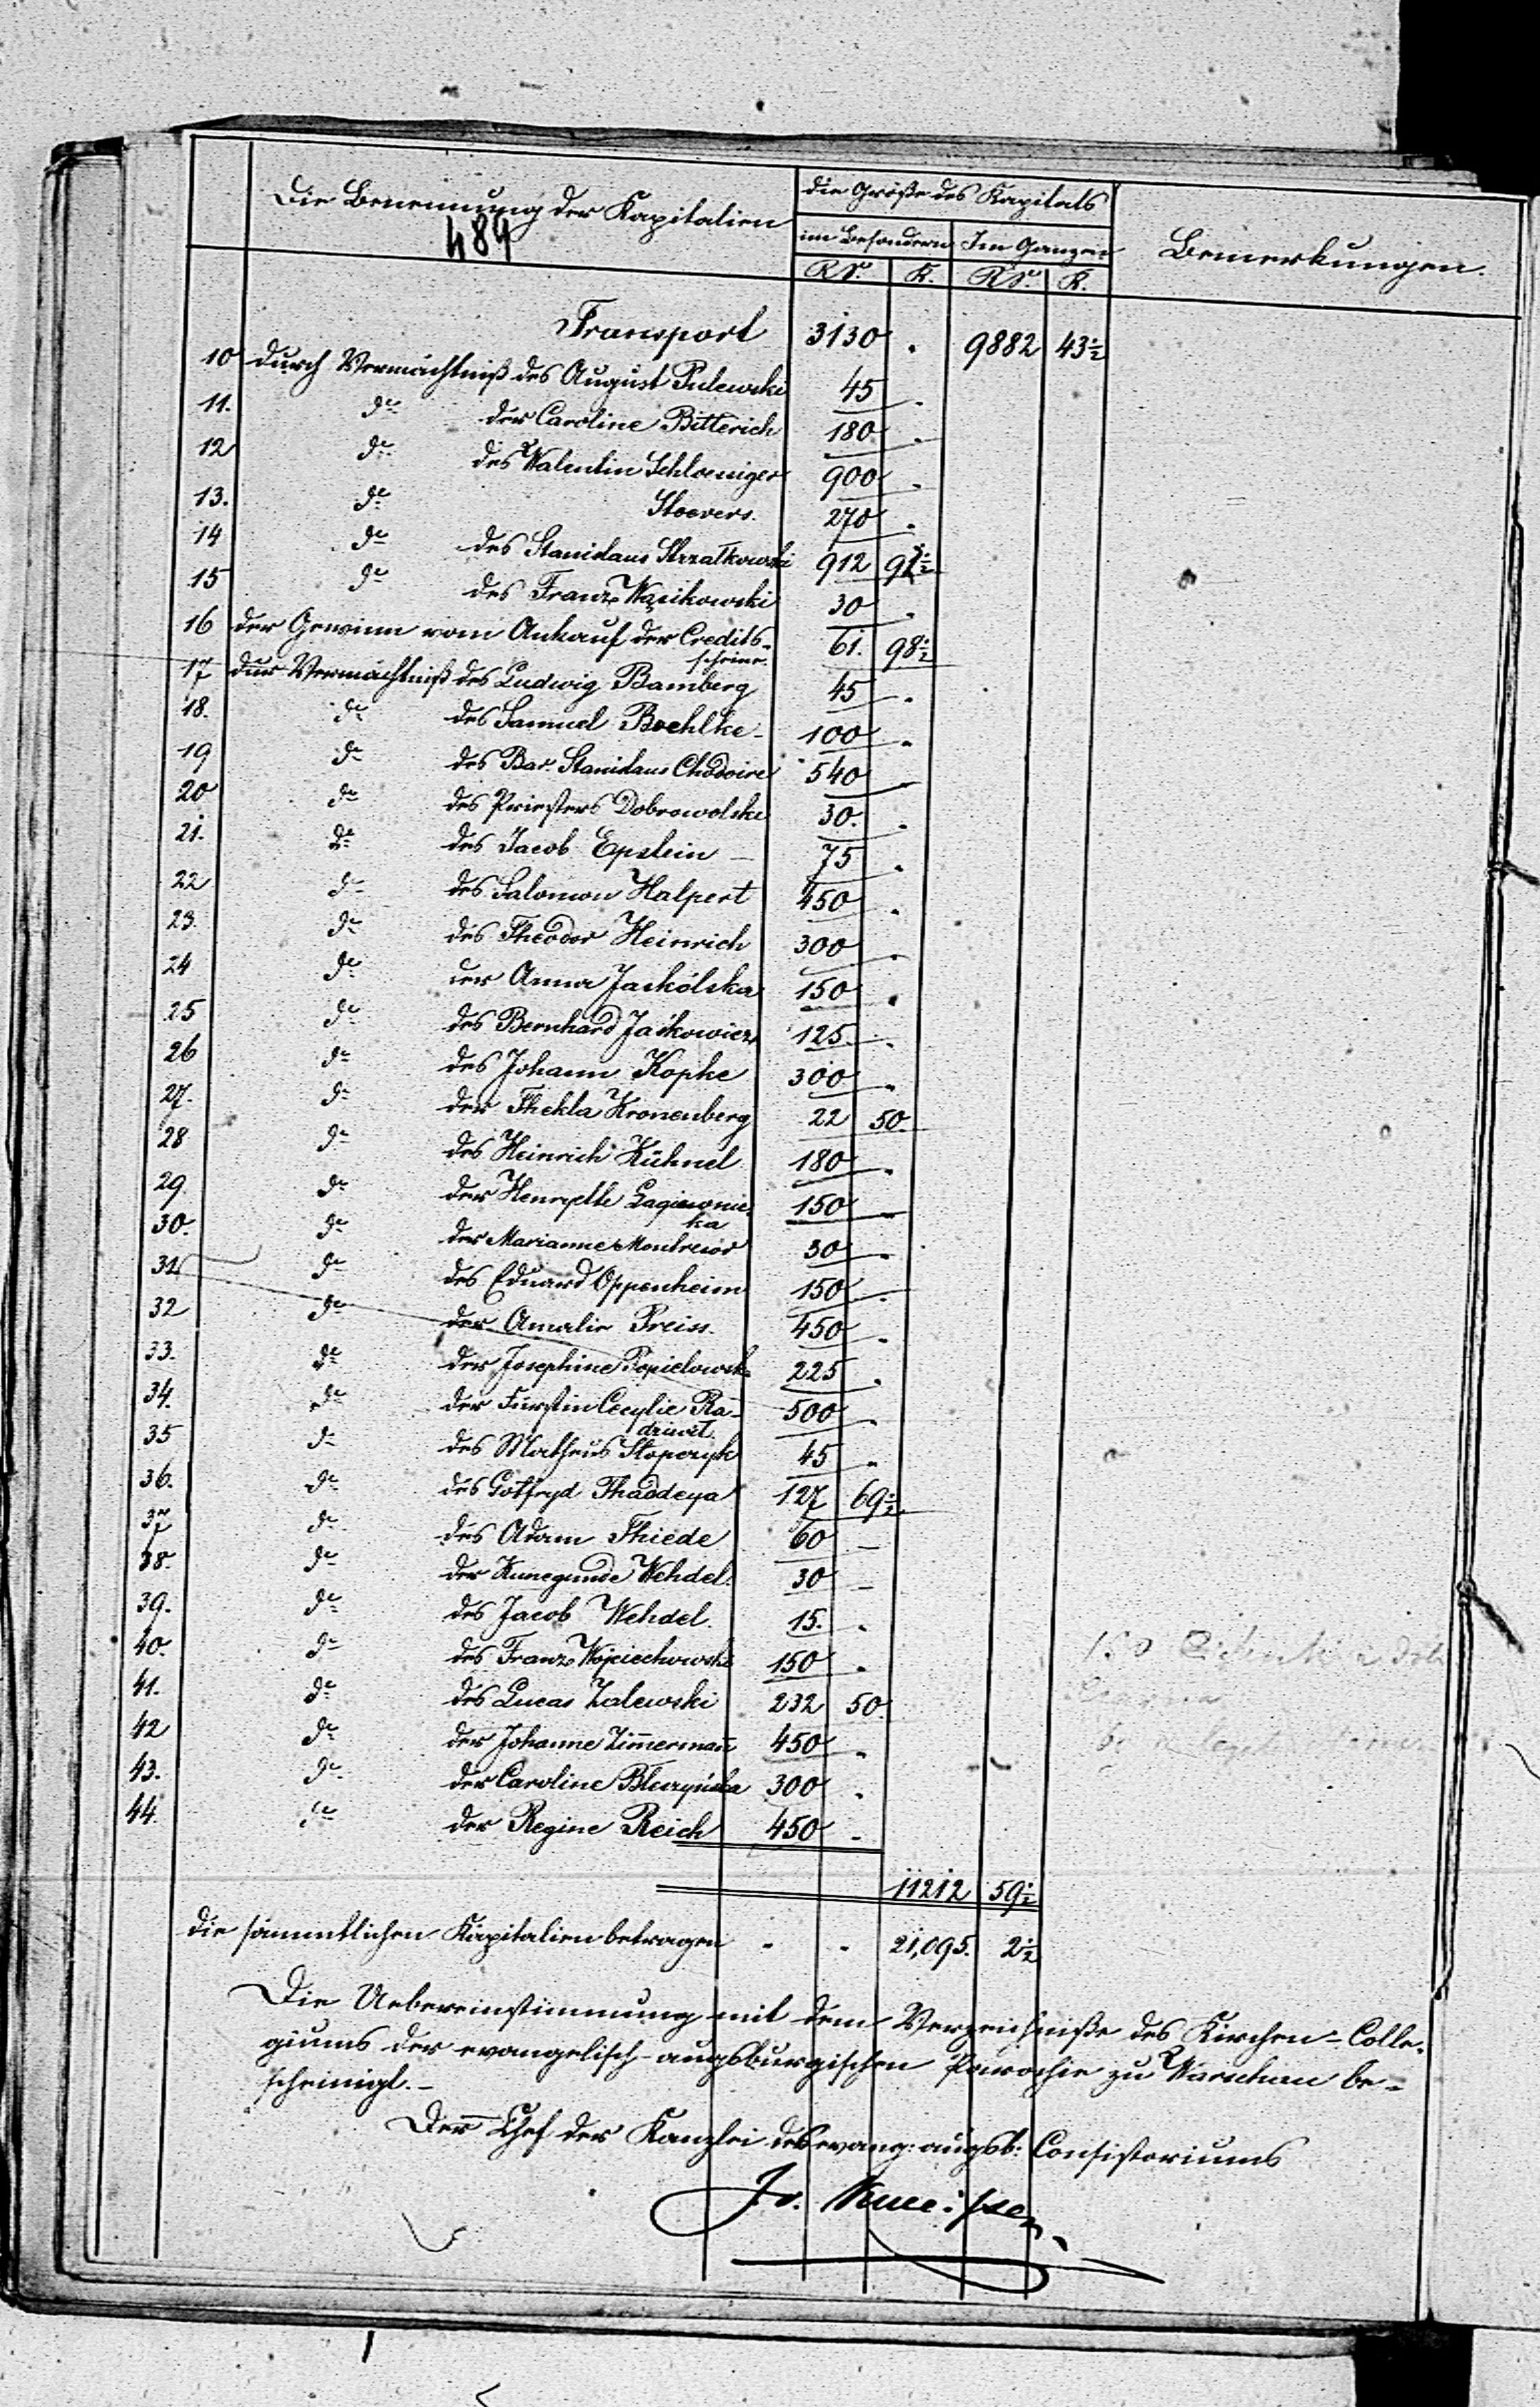 Die Benennung der Kapitalien
484
die Größe des Kapitals
im Besondern Im Ganzen
RSr. K. RSr. K.
Bemerkungen.
Transport 3130 . 9882 43½
10 durch Vermächtniß des August Pulewski 45 .
11. do der Caroline Bitterich 180 .
12 do des Valentin Schloeniger 900 .
13. do Stoevers. 270 .
14 do des Stanislaus Strzałkowski 912 92½
15 do des Franz Wąsikowski 30 .
16 der Gewinn vom Ankauf der Credits- 61. 98½
scheine.
17 dur Vermächtniß des Ludwig Bamberg 45 .
18. do des Samuel Boehlke - 100 .
19 do des Bar. Stanislaus Chodoire 540
20 do des Priesters Dobrowolski 30. .
21. do des Jacob Epstein - 75 .
22 do des Salomon Halpert 450 .
23. do des Theodor Heinrich 300 .
24 do der Anna Jaskólska 150 .
25 do des Bernhard Jaśkowicz 125 .
26 do des Johann Kopke 300 .
27. do der Thekla Kronenberg 22 50.
28 do des Heinrich Kühnel 180 .
29. do der Henryette Łagiewnic- 150
ka
30. do der Marianne Montreior 30 .
31 do des Eduard Oppenheim 150 .
32 do der Amalie Preiss. 450 .
33. do der Josephine Popielowsk 225 .
34. do der Fürstin Cecylie Ra- 500 .
dziwił.
35 do des Matheus Stopczyk 45 .
36. do des Gotfryd Thaddeya 127 69½
37 do des Adam Thiede 60 -
38. do der Kunegunde Wehdel. 30 -
39. do des Jacob Wehdel. 15. .
40. do des Franz Wojciechowski 150 .
41. do des Lucas Zalewski 232 50.
42 do der Johanne Zimmermann 450 .
43. do der Caroline Błeszyńska 300 .
44. do der Regine Reich 450 -
11212 59½
die sämmtlichen Kapitalien betragen - - 21,095. 2½
Die Uebereinstimmung mit dem Verzeichniße des Kirchen-Colle-
giums der evangelisch-augsburgischen Parochie zu Warschau be-
scheinigt. -
Der Chef der Kanzlei des evang: augsb: Consistoriums